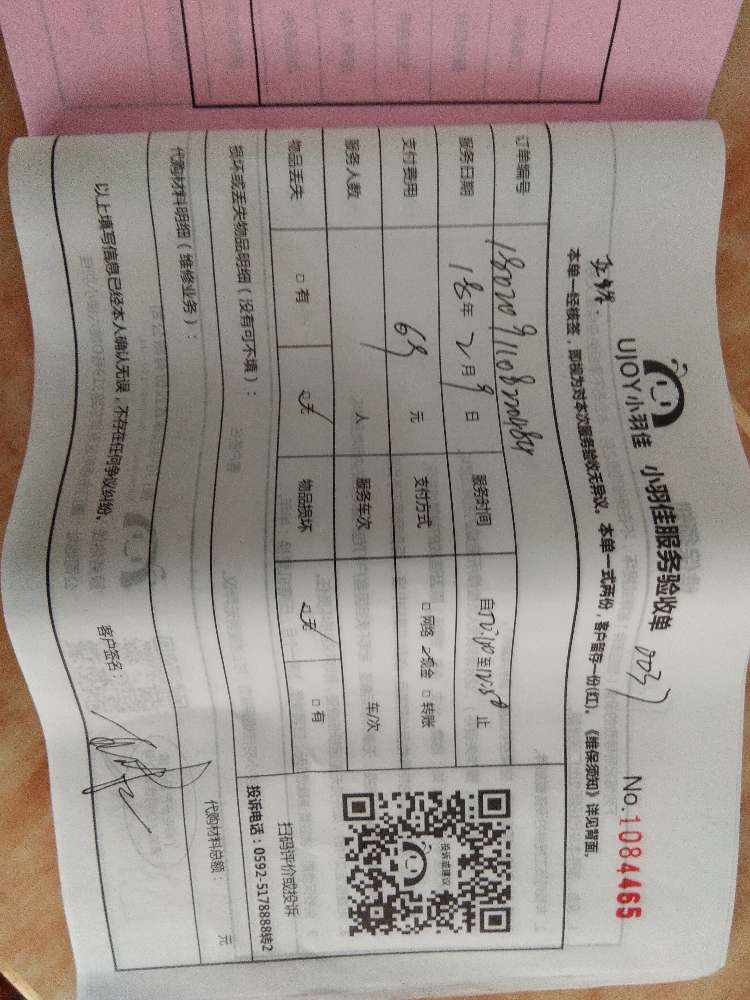 UJOY小羽佳 小羽佳服务验收单 0037 No.1084465
本单一经核签，即视为对本次服务验收无异议。本单一式两份，客户留存一份(红)。《维保须知》详见背面。
订单编号
服务日期 18年2月9日 服务时间 自 至 止
支付费用 69 元 支付方式 □网络 ☑现金 □转账
服务人数 人 服务车次 车/次
物品丢失 □有 ☑无 物品损坏 ☑无 □有
投诉或建议
扫码评价或投诉
投诉电话：0592-5178888转2
损坏或丢失物品明细（没有可不填）：
代购材料明细（维修业务）： 代购材料总额： 元
以上填写信息已经本人确认无误，不存在任何争议纠纷。 客户签名：